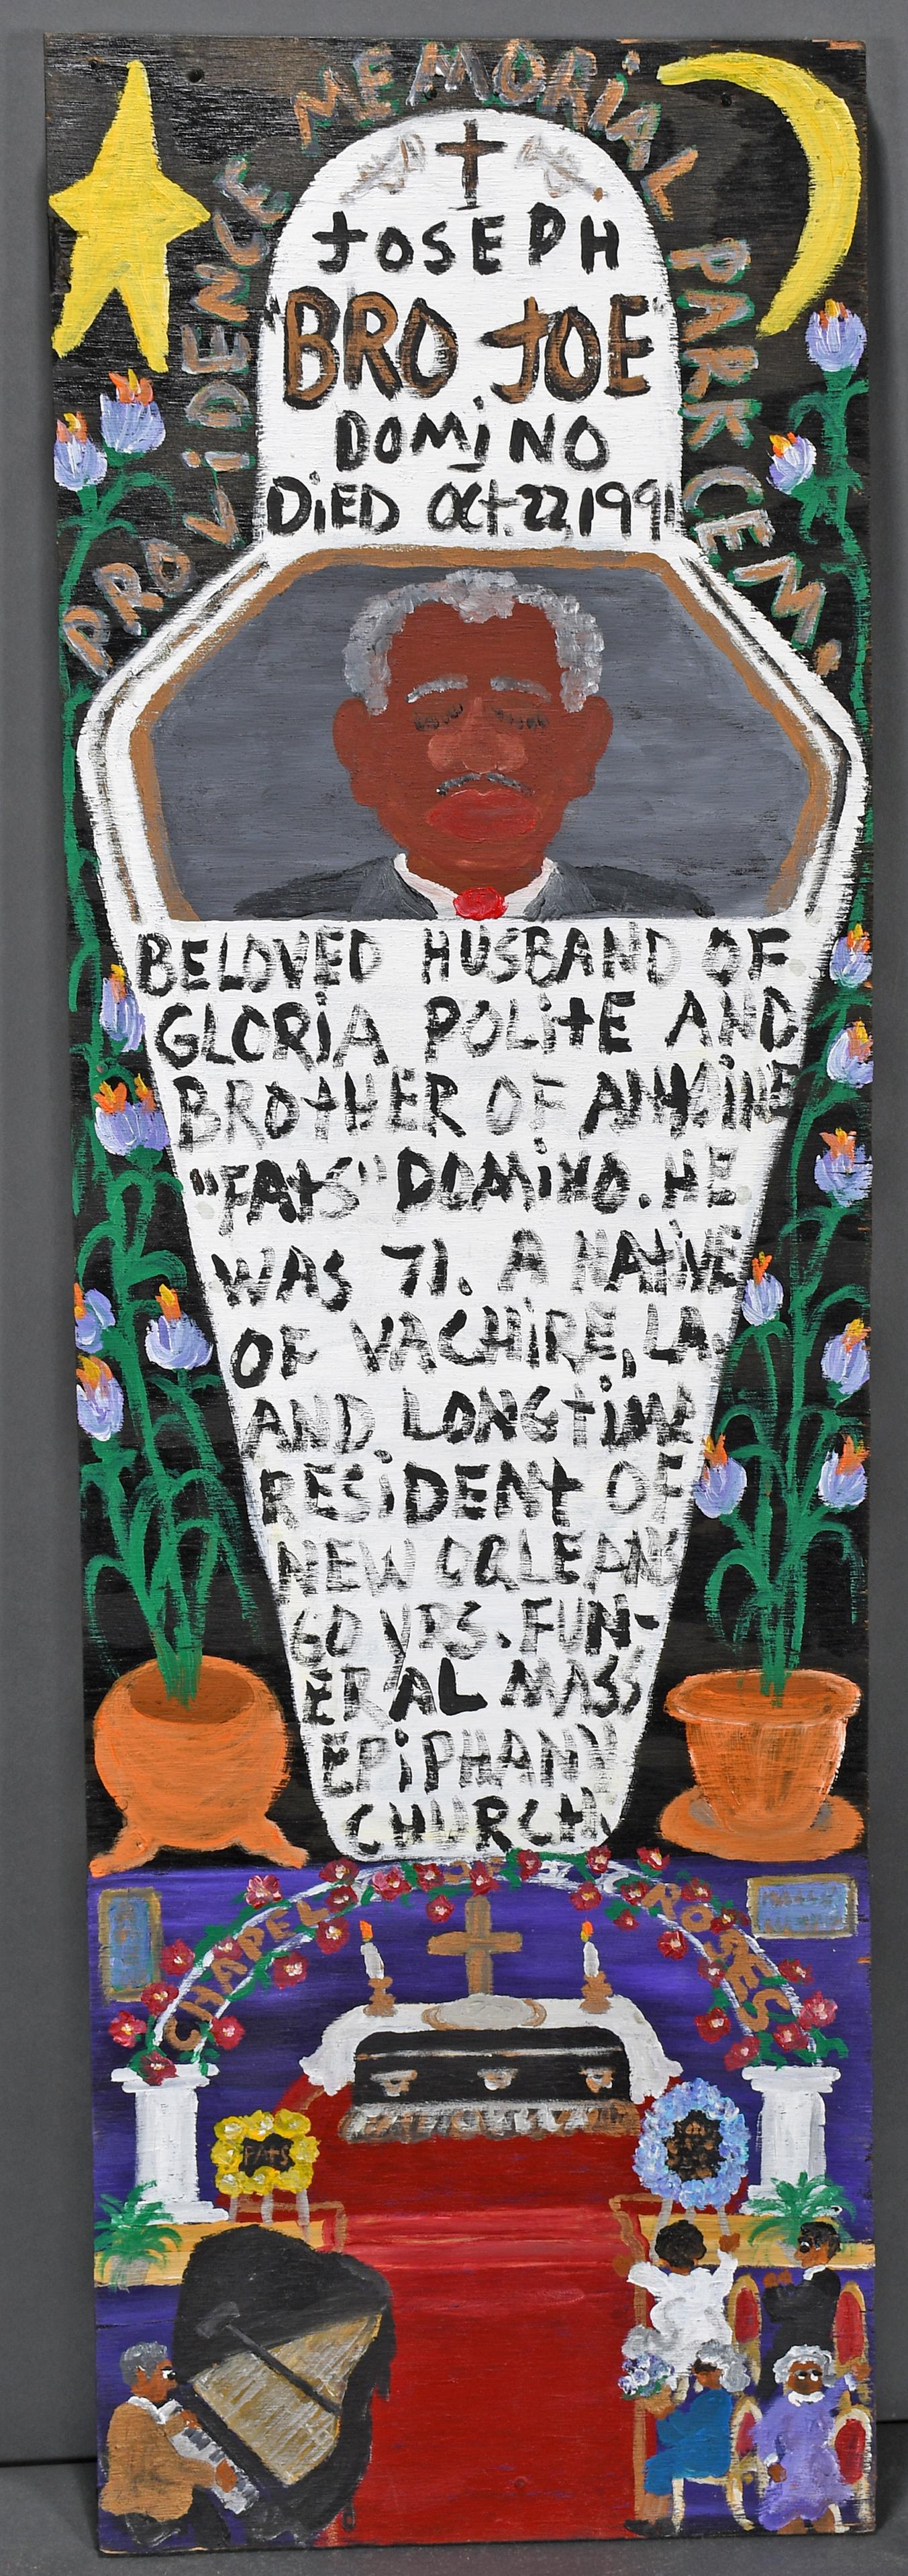 PROVIDENCE MEMORIAL PARK CEM.
JOSEPH
"BRO JOE"
DOMINO
DIED OCT. 22, 1991
BELOVED HUSBAND OF
GLORIA POLITE AND
BROTHER OF ANTOINE
"FATS" DOMINO. HE
WAS 71. A NATIVE
OF VACHIRE, LA.
AND LONGTIME
RESIDENT OF
NEW ORLEANS
60 YRS. FUN-
ERAL MASS
EPIPHANY
CHURCH.
CHAPEL OF ROSES
FATS